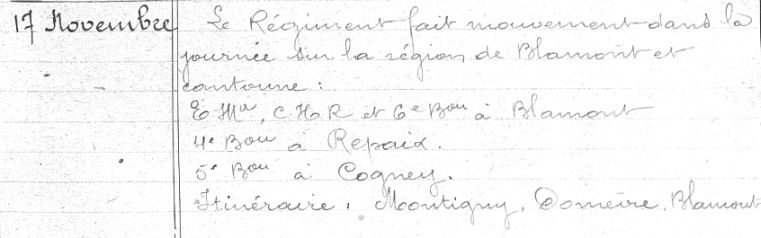 17 Novembre Le Régiment fait mouvement dans la
journée sur la région de Blamont et
cantonne :
E Mr, C H R et 6e Bon à Blamont
4e Bon à Repaix.
5e Bon à Cogney.
Itinéraire, Montigny, Domèvre, Blamont